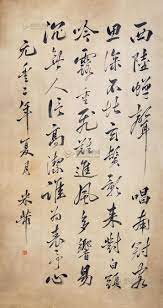 西陸蟬聲唱南冠客
思深不堪玄鬢影來對白頭
吟露重飛難進風多響易
沉無人信高潔誰為表予心
元豐二年夏月 米芾